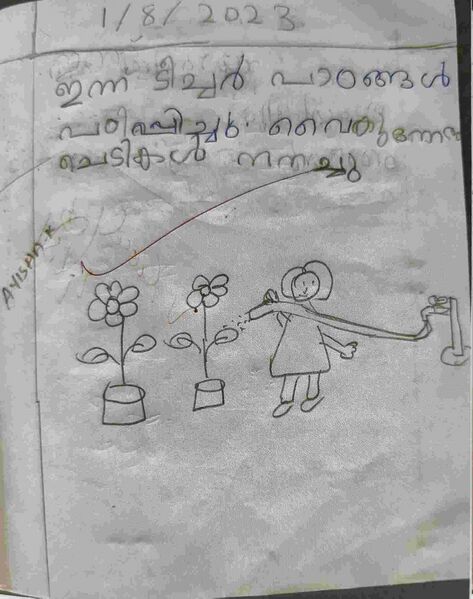 1/8/2023
ഇന്ന് ടീച്ചർ പാഠങ്ങൾ
പഠിപ്പിച്ചു വൈകുന്നേരം
ചെടികൾ നനച്ചു
AYISHA K